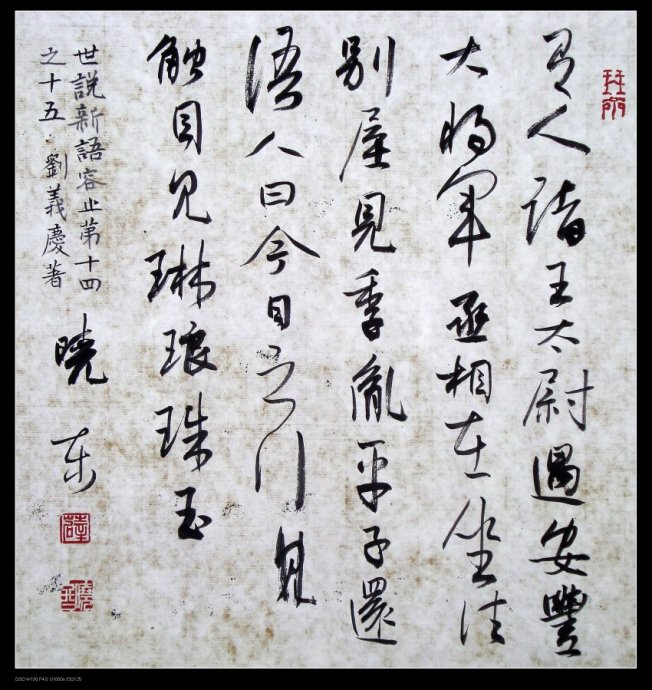 有人詣王太尉遇安豐
大將軍丞相在坐往
別屋見季胤平子還
語人曰今日之行見
觸目見琳琅珠玉
世說新語容止第十四
之十五 劉義慶著
曉東